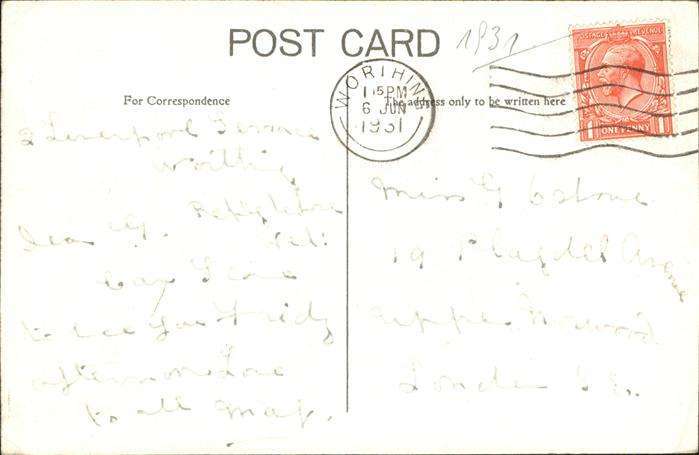 POST CARD
1931
WORTHING
1 15 PM
6 JUN
1931
POSTAGE REVENUE
1 ONE PENNY 1
For Correspondence
The address only to be written here
2 Liverpool Terrace
Worthing
Dear G.
to see you Friday
afternoon Love
to all May.
Miss G
19 Avenue
Upper Norwood
London S.E.